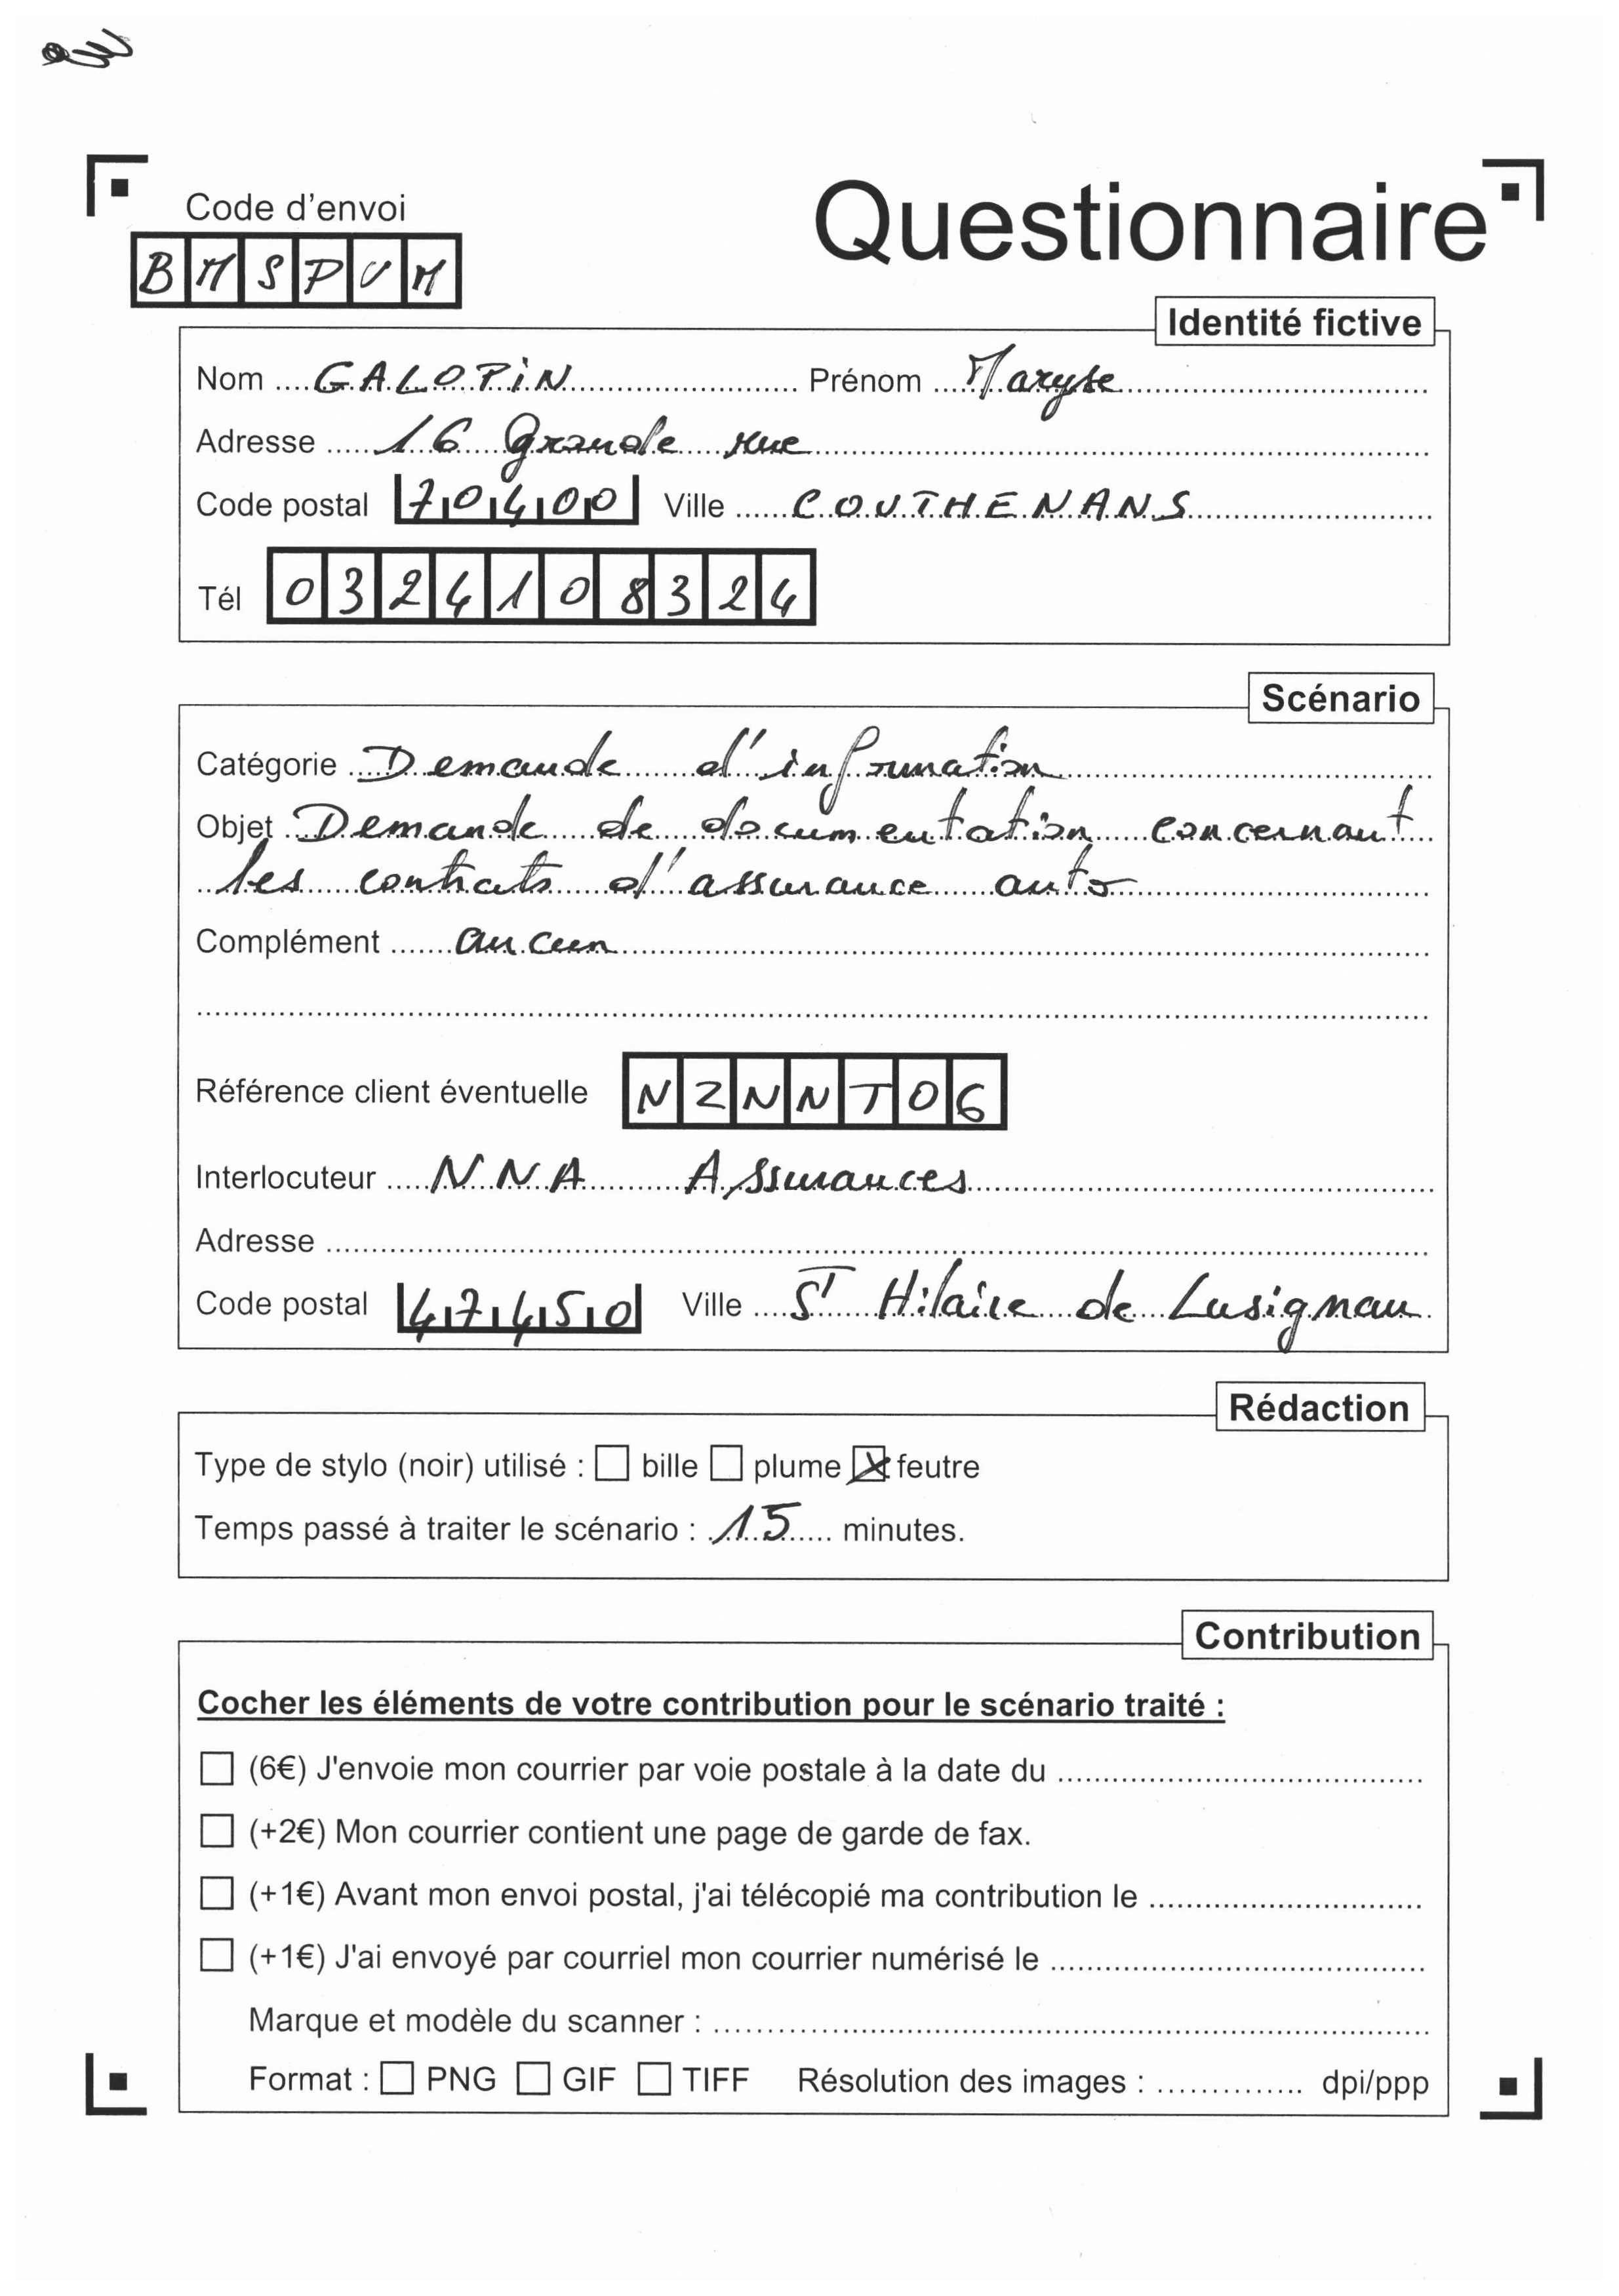 Code d'envoi
BMSPVM
Questionnaire
Identité fictive
Nom GALOPiN Prénom Maryse
Adresse 16 Grande rue
Code postal 70400 Ville COUTHENANS
Tél 0324108324
Scénario
Catégorie Demande d'information
Objet Demande de documentation concernant
les contrats d'assurance auto
Complément aucun
Référence client éventuelle NZNNT06
Interlocuteur NNA Assurances
Adresse
Code postal 47450 Ville St Hilaire de Lusignan
Rédaction
Type de stylo (noir) utilisé : bille plume feutre
Temps passé à traiter le scénario : 15 minutes.
Contribution
Cocher les éléments de votre contribution pour le scénario traité :
(6€) J'envoie mon courrier par voie postale à la date du
(+2€) Mon courrier contient une page de garde de fax.
(+1€) Avant mon envoi postal, j'ai télécopié ma contribution le
(+1€) J'ai envoyé par courriel mon courrier numérisé le
Marque et modèle du scanner :
Format : PNG GIF TIFF Résolution des images : dpi/ppp